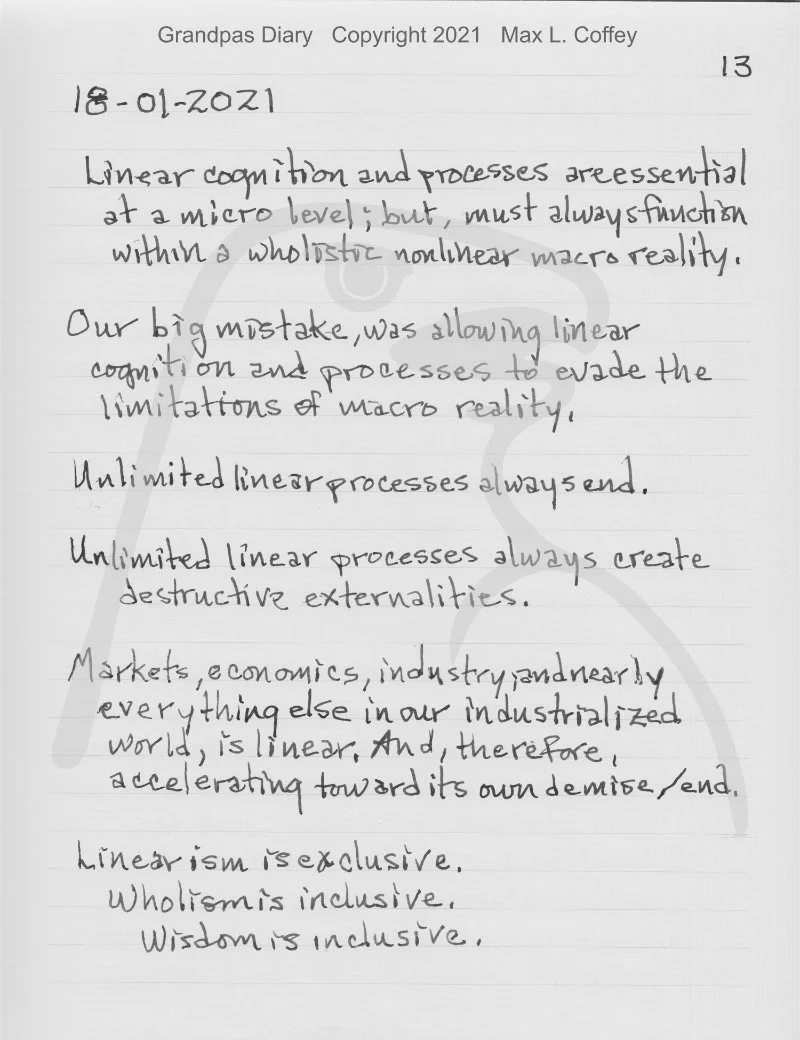 Grandpas Diary Copyright 2021 Max L. Coffey
13
18-01-2021
Linear cognition and processes are essential
at a micro level; but, must always function
within a wholistic nonlinear macro reality.
Our big mistake, was allowing linear
cognition and processes to evade the
limitations of macro reality.
Unlimited linear processes always end.
Unlimited linear processes always create
destructive externalities.
Markets, economics, industry, and nearly
everything else in our industrialized
world, is linear. And, therefore,
accelerating toward its own demise/end.
Linearism is exclusive.
Wholism is inclusive.
Wisdom is inclusive.